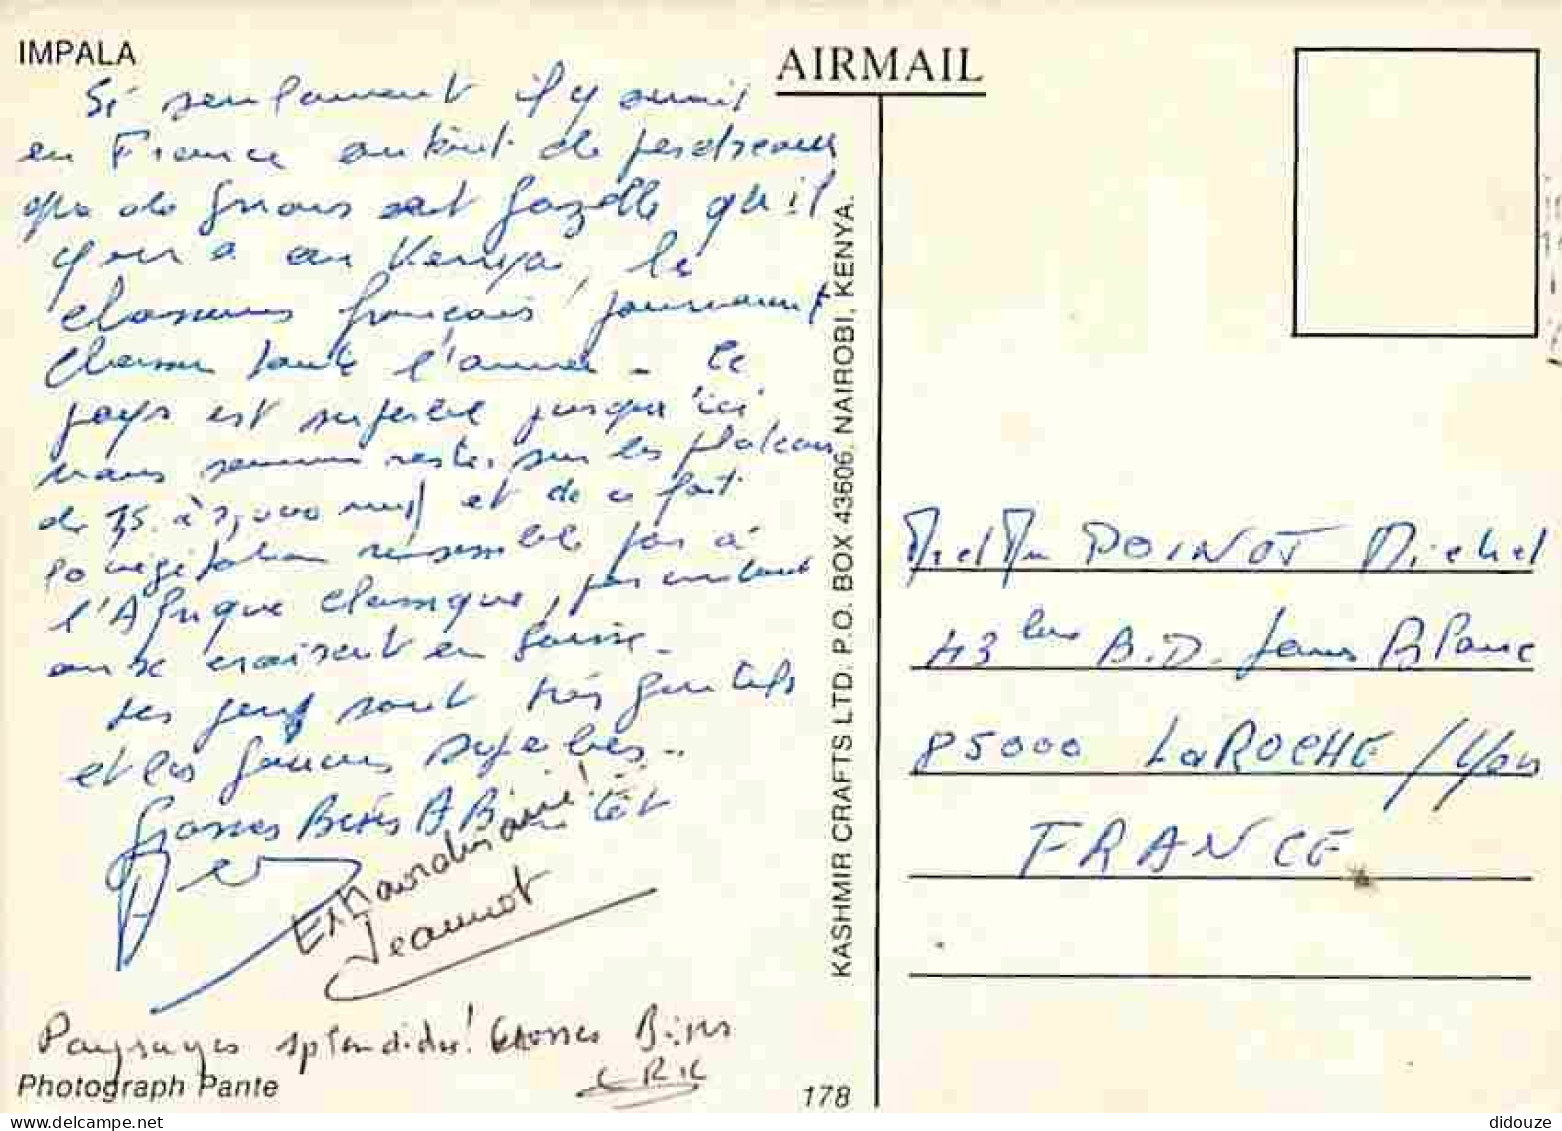 IMPALA
AIRMAIL
Si seulement il y aurait
en France autant de perdreaux
que de gnous et gazelle qu'il
y en a au Kenya, le
chasseurs français pourraient
chasser toute l'année - le
pays est superbe jusqu'ici
nous sommes restés sur les plateaux
de 15 à et de ce fait
la végétation ressemble pas à
l'Afrique classique, par instant
on se croirait en Suisse -
les gens sont très gentils
et les superbes -
Grosses Bises A Bientôt
Extraordinaire!
Jeannot
Paysages splendides! Grosses Bises
ERIC
Photograph Pante
178
KASHMIR CRAFTS LTD. P.O. BOX 43606, NAIROBI, KENYA.
Mr et Mme POINOT Michel
43 bis B.D. Louis Blanc
85000 La ROCHE / Yon
FRANCE
didouze